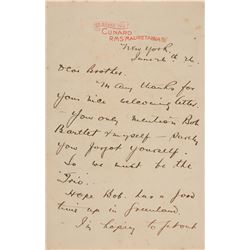 ON BOARD THE
CUNARD
R.M.S. "MAURETANIA"
New York
June 26th 26.
Dear Brother.
Many thanks for
your nice welcoming letter.
You only mention Bob
Bartlet & myself — surely
you forgot yourself.
So we must be the
Trio.
Hope Bob has a good
time up in Greenland.
I'm hoping to get out